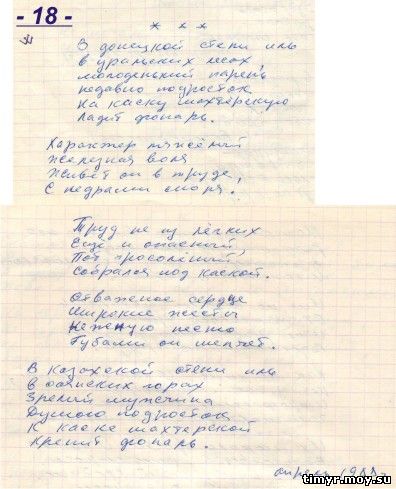 - 18 -
* * *
В донецкой степи иль
в уральских лесах,
молоденький парень,
недавно подросток
На каску шахтёрскую
Ладит фонарь.
Характер тяжёлый
Железная воля
Живёт он в труде,
С недрами споря.
Труд не из лёгких
Ещё и опасный,
Пот просоленый,
Собрался под каской.
Отважное сердце
Широкие жесты
Нежную песню
Губами он шепчет.
В казахской степи иль
в саянских горах
Зрелый мужчина
Думою подросток
К каске шахтерской
Крепит фонарь.
апрель
timyr-moy.su